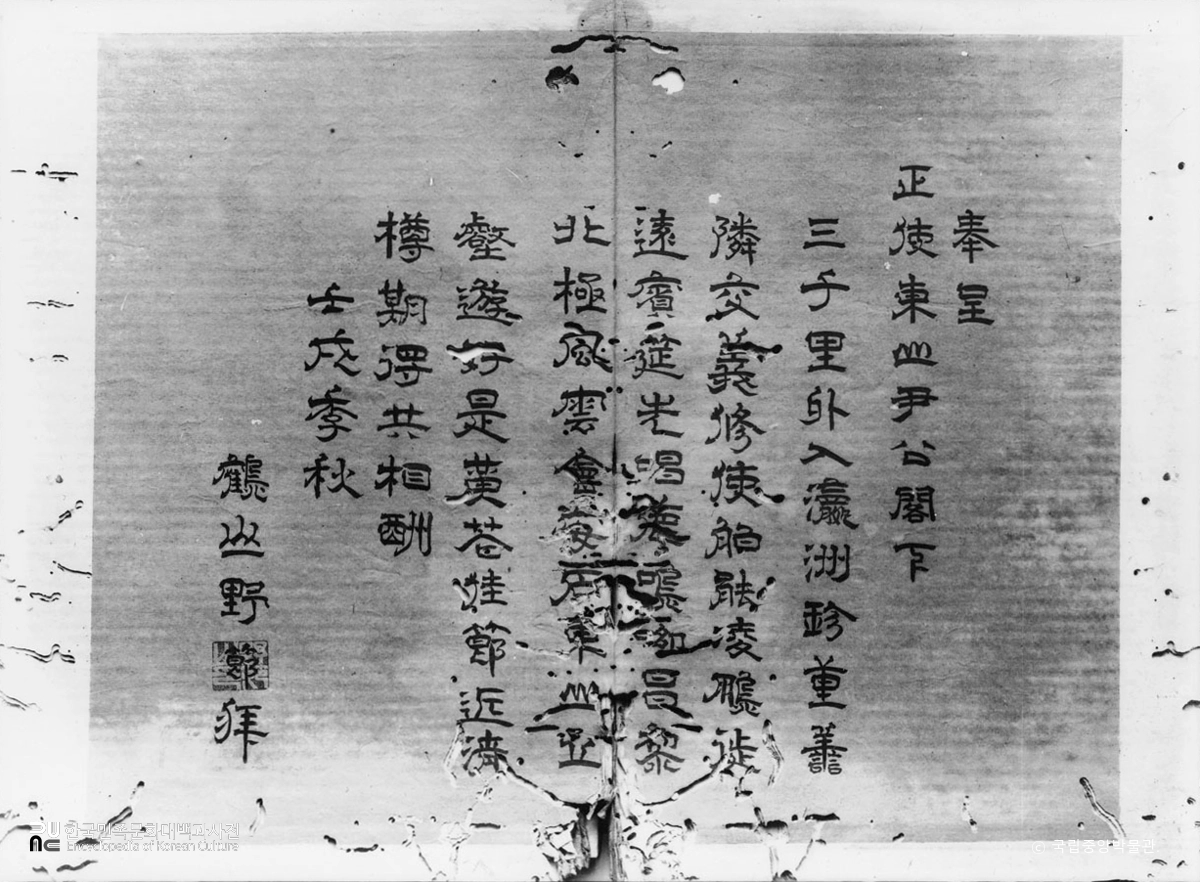 奉呈
正使東山尹公閣下
三千里外入瀛洲珍重善
隣交義修使舶能凌鵬徙
遠賓筵先唱鹿鳴昌黎
北極風雲會安石東山丘
壑遊好是黃花佳節近清
樽期得共相酬
壬戌季秋
鶴山野節拜
한국민족문화대백과사전
Encyclopedia of Korean Culture
ⓒ 국립중앙박물관